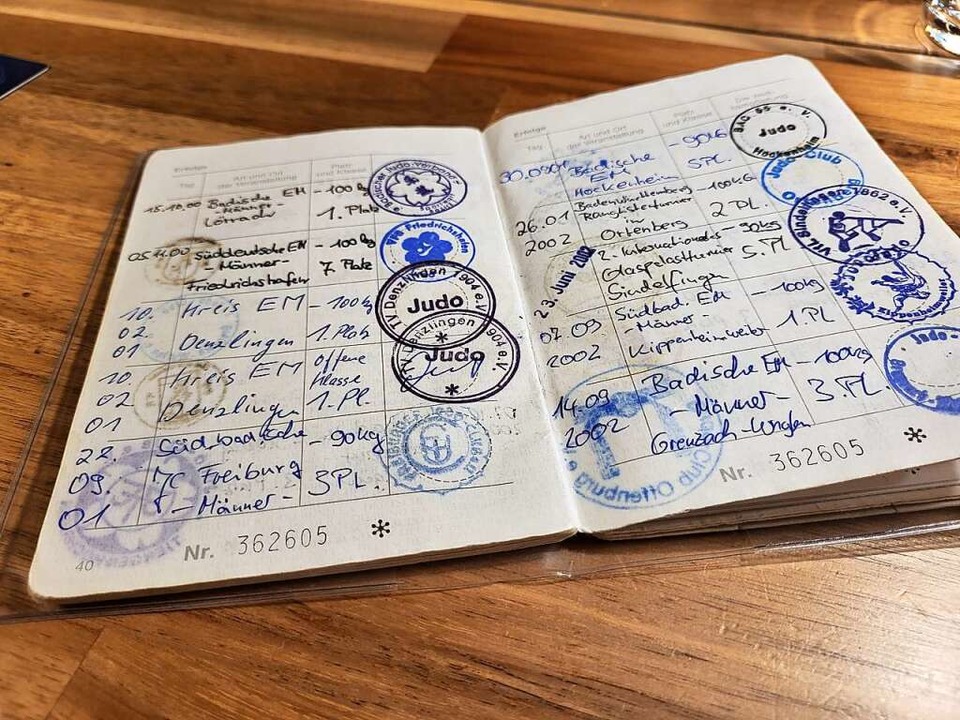 Erfolge
Tag
Art und Ort
der Veranstaltung
Platz
und Klasse
15.10.00 Badische EM - 100 kg
- Männer -
Lörrach 1. Platz
05.11.00 Süddeutsche EM - 100 kg
- Männer -
Friedrichshafen 7. Platz
VfB Friedrichshafen
10. Kreis EM - 100kg
02.
01 Denzlingen 1. Platz
TV Denzlingen 1904 e.V.
Judo
10. Kreis EM offene
02 Klasse
01 Denzlingen 1. Pl.
TV Denzlingen 1904 e.V.
Judo
22. Südbadische - 90kg
09. Freiburg
01 - Männer - 3 PL.
40
Nr. 362605 *
Erfolge
Tag
Art und Ort
der Veranstaltung
Platz
und Klasse
Badische - 90kg
EM
Hockenheim 5PL.
BAC 55 e. V.
Judo
Hockenheim
26.01 Baden-Württemberg - 100kg
2002 Ranglistenturnier
in
Ortenberg 2 PL.
Judo-Club
23. Juni 2002
2. Internationales - 90kg
Glaspalastturnier
Sindelfingen 5. PL
VfL Sindelfingen 1862 e.V.
07.09 Südbad. EM - 100kg
2002 - Männer -
Kippenheimweiler 1. PL
14.09 Badische EM - 100kg
2002 - Männer - 3. PL.
Grenzach-Wyhlen
Judo-
Club Offenburg
Nr. 362605 *